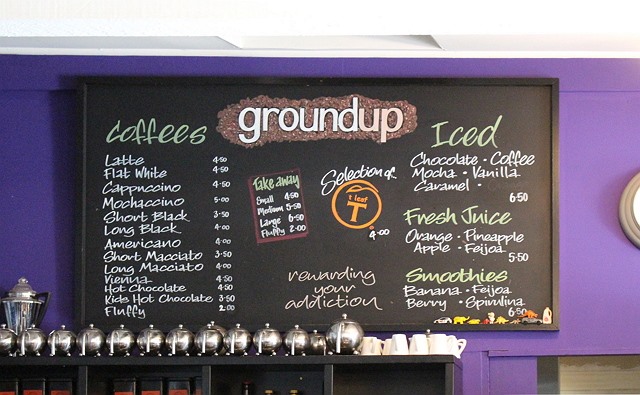 groundup
Coffees
Latte 4·50
Flat White 4·50
Cappuccino 4·50
Mochaccino 5·00
Short Black 3·50
Long Black 4·00
Americano 4·00
Short Macchiato 3·50
Long Macchiato 4·00
Vienna 4·50
Hot Chocolate 4·50
Kids Hot Chocolate 3·50
Fluffy 2·00
Take away
Small 4·50
Medium 5·50
Large 6·50
Fluffy 2·00
Selection of
t leaf
T
4·00
rewarding
your
addiction
Iced
Chocolate · Coffee
Mocha · Vanilla
Caramel ·
6·50
Fresh Juice
Orange · Pineapple
Apple · Feijoa
5·50
Smoothies
Banana · Feijoa
Berry · Spirulina
6·50